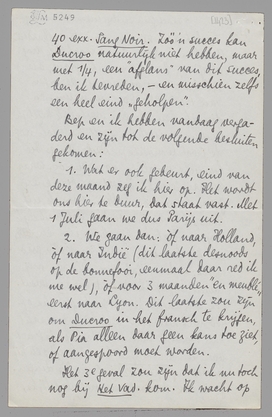 5249
40 exx. Sang Noir. Zóó'n succes kan
Ducroo natuurlijk niet hebben, maar
met 1/4, een "afglans" van dit succes,
ben ik tevreden, - en misschien zelfs
een heel eind "geholpen".
Bep en ik hebben vandaag verga-
derd en zijn tot de volgende besluiten
gekomen:
1. Wat er ook gebeurt, eind van
deze maand zeg ik hier op. Het wordt
ons hier te duur, dat staat vast. Met
1 Juli gaan we dus Parijs uit.
2. We gaan dan: òf naar Holland,
òf naar Indië (dit laatste desnoods
op de bonnefooi, eenmaal daar red ik
me wel), òf voor 3 maanden "en meublé"
eerst naar Lyon. Dit laatste zou zijn
om Ducroo in het fransch te krijgen,
als Pia alleen daar geen kans toe ziet,
of aangespoord moet worden.
Het 3e geval zou zijn dat ik nu toch
nog bij Het Vad. kom. Ik wacht op